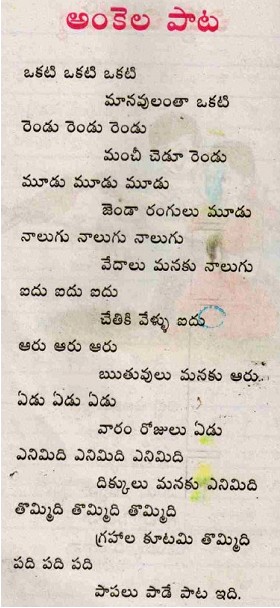 అంకెల పాట
ఒకటి ఒకటి ఒకటి
మానవులంతా ఒకటి
రెండు రెండు రెండు
మంచీ చెడూ రెండు
మూడు మూడు మూడు
జెండా రంగులు మూడు
నాలుగు నాలుగు నాలుగు
వేదాలు మనకు నాలుగు
ఐదు ఐదు ఐదు
చేతికి వేళ్ళు ఐదు
ఆరు ఆరు ఆరు
ఋతువులు మనకు ఆరు.
ఏడు ఏడు ఏడు
వారం రోజులు ఏడు
ఎనిమిది ఎనిమిది ఎనిమిది
దిక్కులు మనకు ఎనిమిది
తొమ్మిది తొమ్మిది తొమ్మిది
గ్రహాల కూటమి తొమ్మిది
పది పది పది
పాపలు పాడే పాట ఇది.